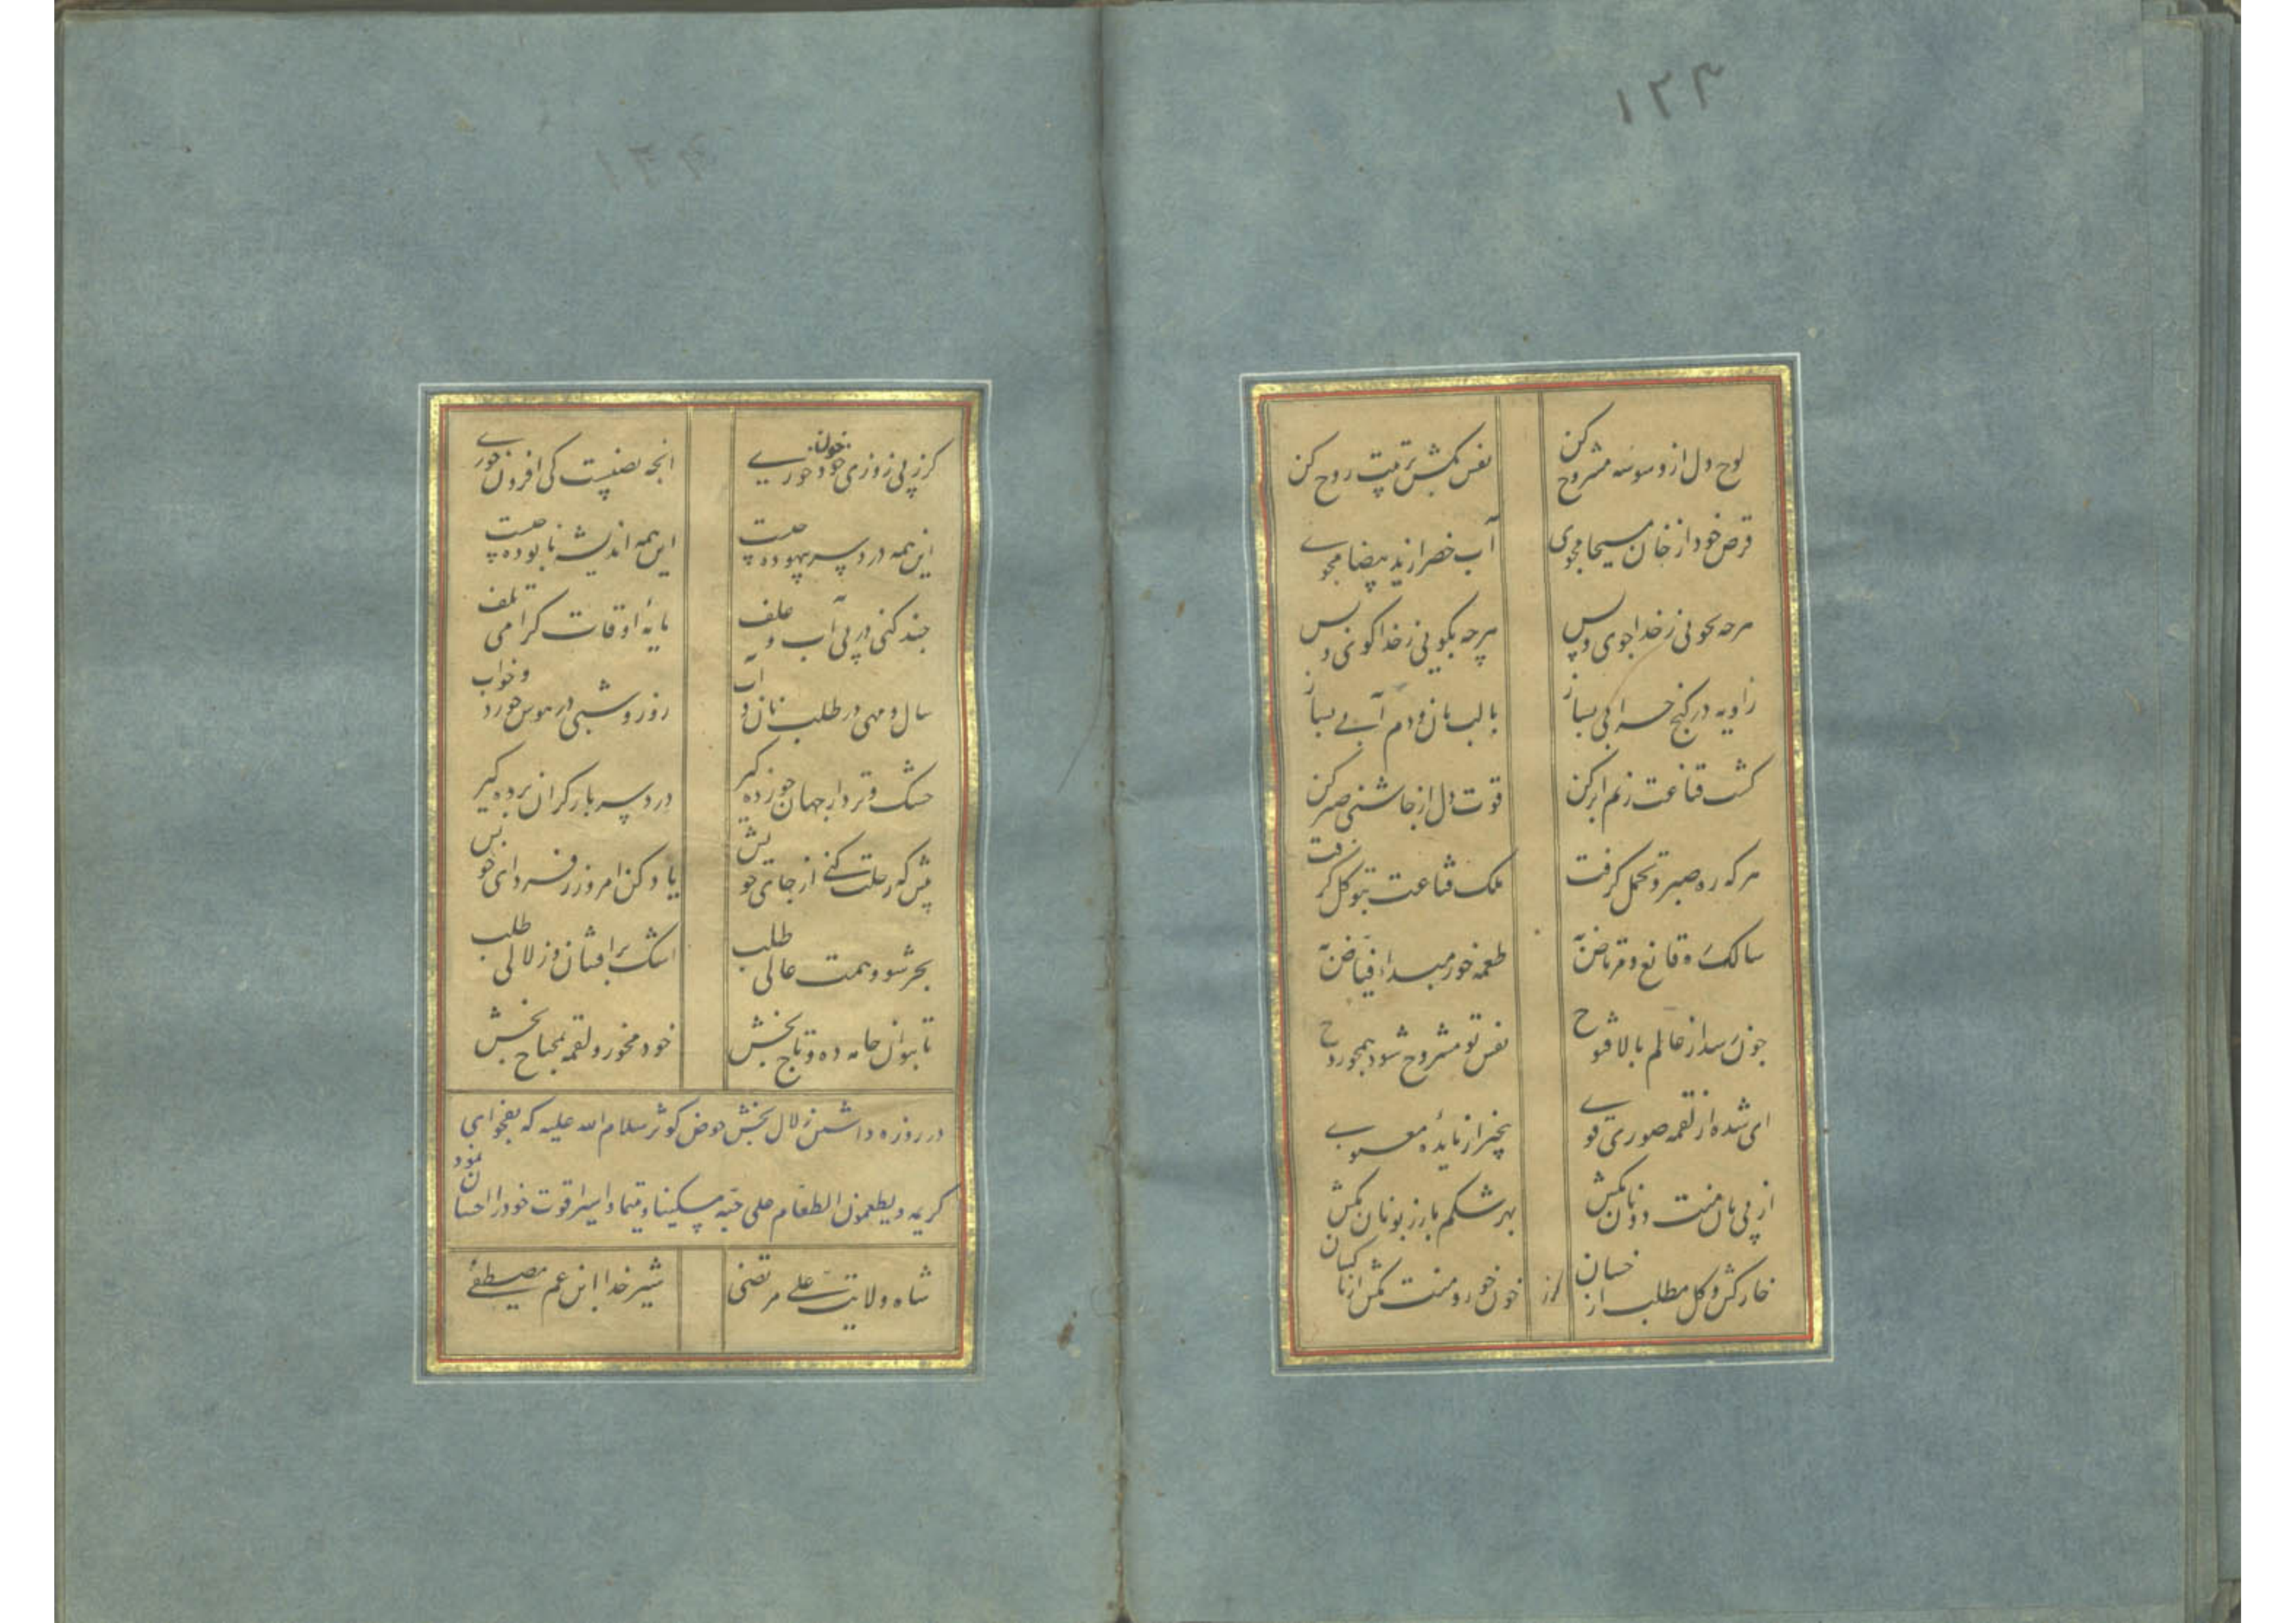 ۱۲۳
لوح دل از وسوسه مشروح کن نفس بکش تربیت روح کن
قرص خود از خان مسیحا مجوی آب خضر از ید بیضا مجوی
هرچه بجویی ز خدا جوی و بس هرچه بگویی ز خدا گوی و بس
زاویه در کنج خرابی بساز با لب نان و دم آبی بساز
کشت قناعت ز نم ابر کن قوت دل از چاشنی صبر کن
هرکه ره صبر و تحمل گرفت ملک قناعت بتوکل گرفت
سالک و قانع و مرتاض طعمه خور مبدا فیاض
چون رسد از عالم بالا فتوح نفس تو مشروح شود همچو روح
ای شده از لقمه صوری قوی بیخبر از مایده معنوی
از پی نان منت دونان مکش بهر شکم بار زبونان مکش
خار کش و گل مطلب از خسان خون خور و منت مکش از ناکسان
کرز
کرز پی روزی خود خون خوری آنچه نصیبست کی افزون خوری
این همه دردسر بیهوده چیست این همه اندیشه نابوده چیست
چند کنی در پی آب و علف مایه اوقات گرامی تلف
سال و مهی در طلب نان و آب روز و شبی در هوس خورد و خواب
خشک و تر دار جهان خورده گیر دردسر بار گران برده گیر
پیش که رحلت کنی از جای خویش یاد کن امروز ز فردای خویش
بحر شو و همت عالی طلب اشک برافشان و زلالی طلب
تا بتوان جامه ده و تاج بخش خود مخور و لقمه بمحتاج بخش
در روزه داشتن زلال بخش حوض کوثر سلام الله علیه که بفحوای
کریمه و یطعمون الطعام علی حبه مسکینا و یتیما و اسیرا قوت خود را احسان نمود
شاه ولایت علی مرتضی شیر خدا ابن عم مصطفی